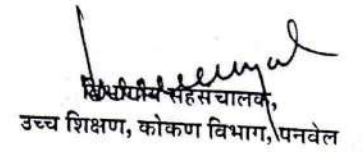 विभागीय सहसंचालक,
उच्च शिक्षण, कोकण विभाग, पनवेल